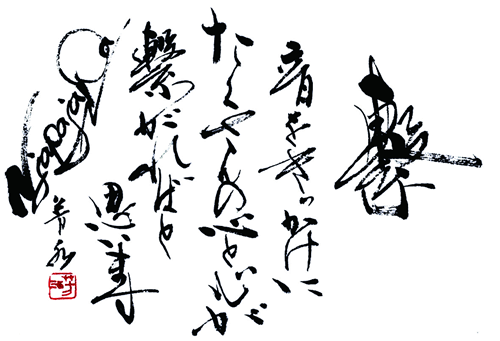 繋
音をきっかけに
たくさんの心と心が
繋がればと
思います